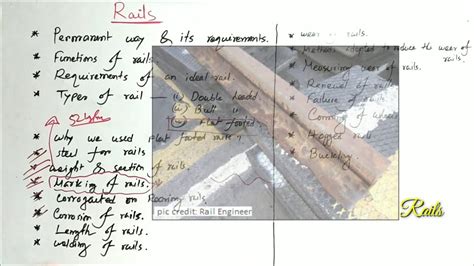 Rails
* Permanent way & its requirements.
* Functions of rails
* Requirements of an ideal rail.
* Types of rail — (i) Double headed
(ii) Bull
(iii) Flat footed
52 kg/m
* Why we used flat footed rails?
* Steel for rails
* Weight & section of rails.
* Marking of rails.
* Corrogated on Roaring rails
* Corrosion of rails.
* Length of rails.
* Welding of rails.
* Wear of rails.
* Methods adopted to reduce the wear of rails.
* Measuring wear of rails.
* Renewal of rails
* Failure of rails
* Coning of wheels
* Hogged rails
* Buckling
pic credit: Rail Engineer
Rails